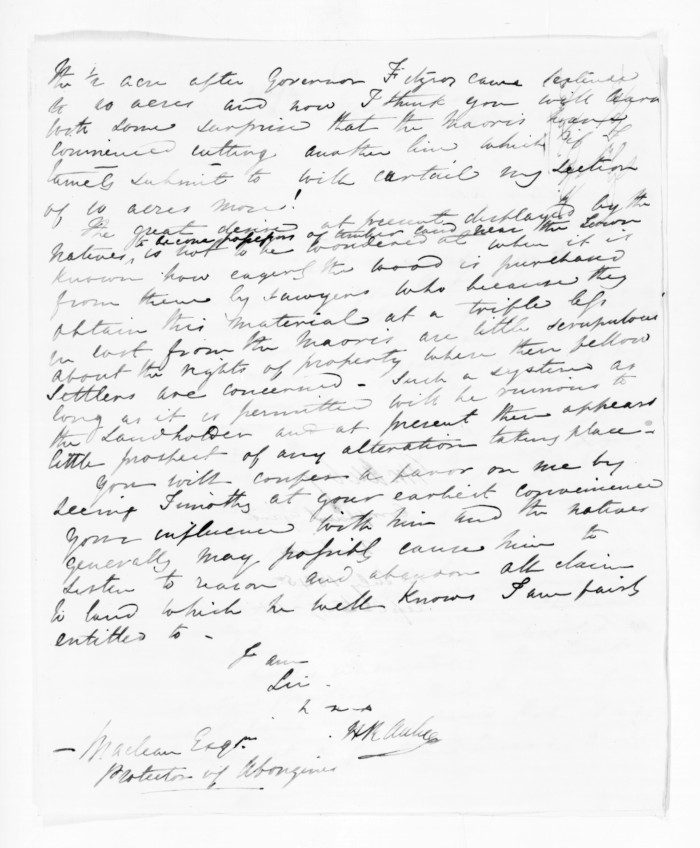 the ½ acre after Governor Fitzroy came
to 10 acres and now I think you will
with some surprise that the Maoris
commenced cutting another line which if
tamely submit to will curtail my section
of 10 acres more!
The great desire at present displayed by the
Natives, to become possessors of timber land near the Town
is not to be wondered at when it is
known how eagerly the wood is purchased
from them by Sawyers who because they
obtain this material at a trifle less
in cost from the Maoris are little scrupulous
about the rights of property where their fellow
Settlers are concerned - Such a system as
long as it is permitted will be ruinous to
the Landholder and at present there appears
little prospect of any alteration taking place -
You will confer a favor on me by
seeing Timothy at your earliest convenience
your influence with him and the natives
generally may possibly cause him to
listen to reason and abandon all claim
to land which he well knows I am fairly
entitled to -
I am
Sir -
H R Aubrey
- Maclean Esqr.
Protector of Aborigines